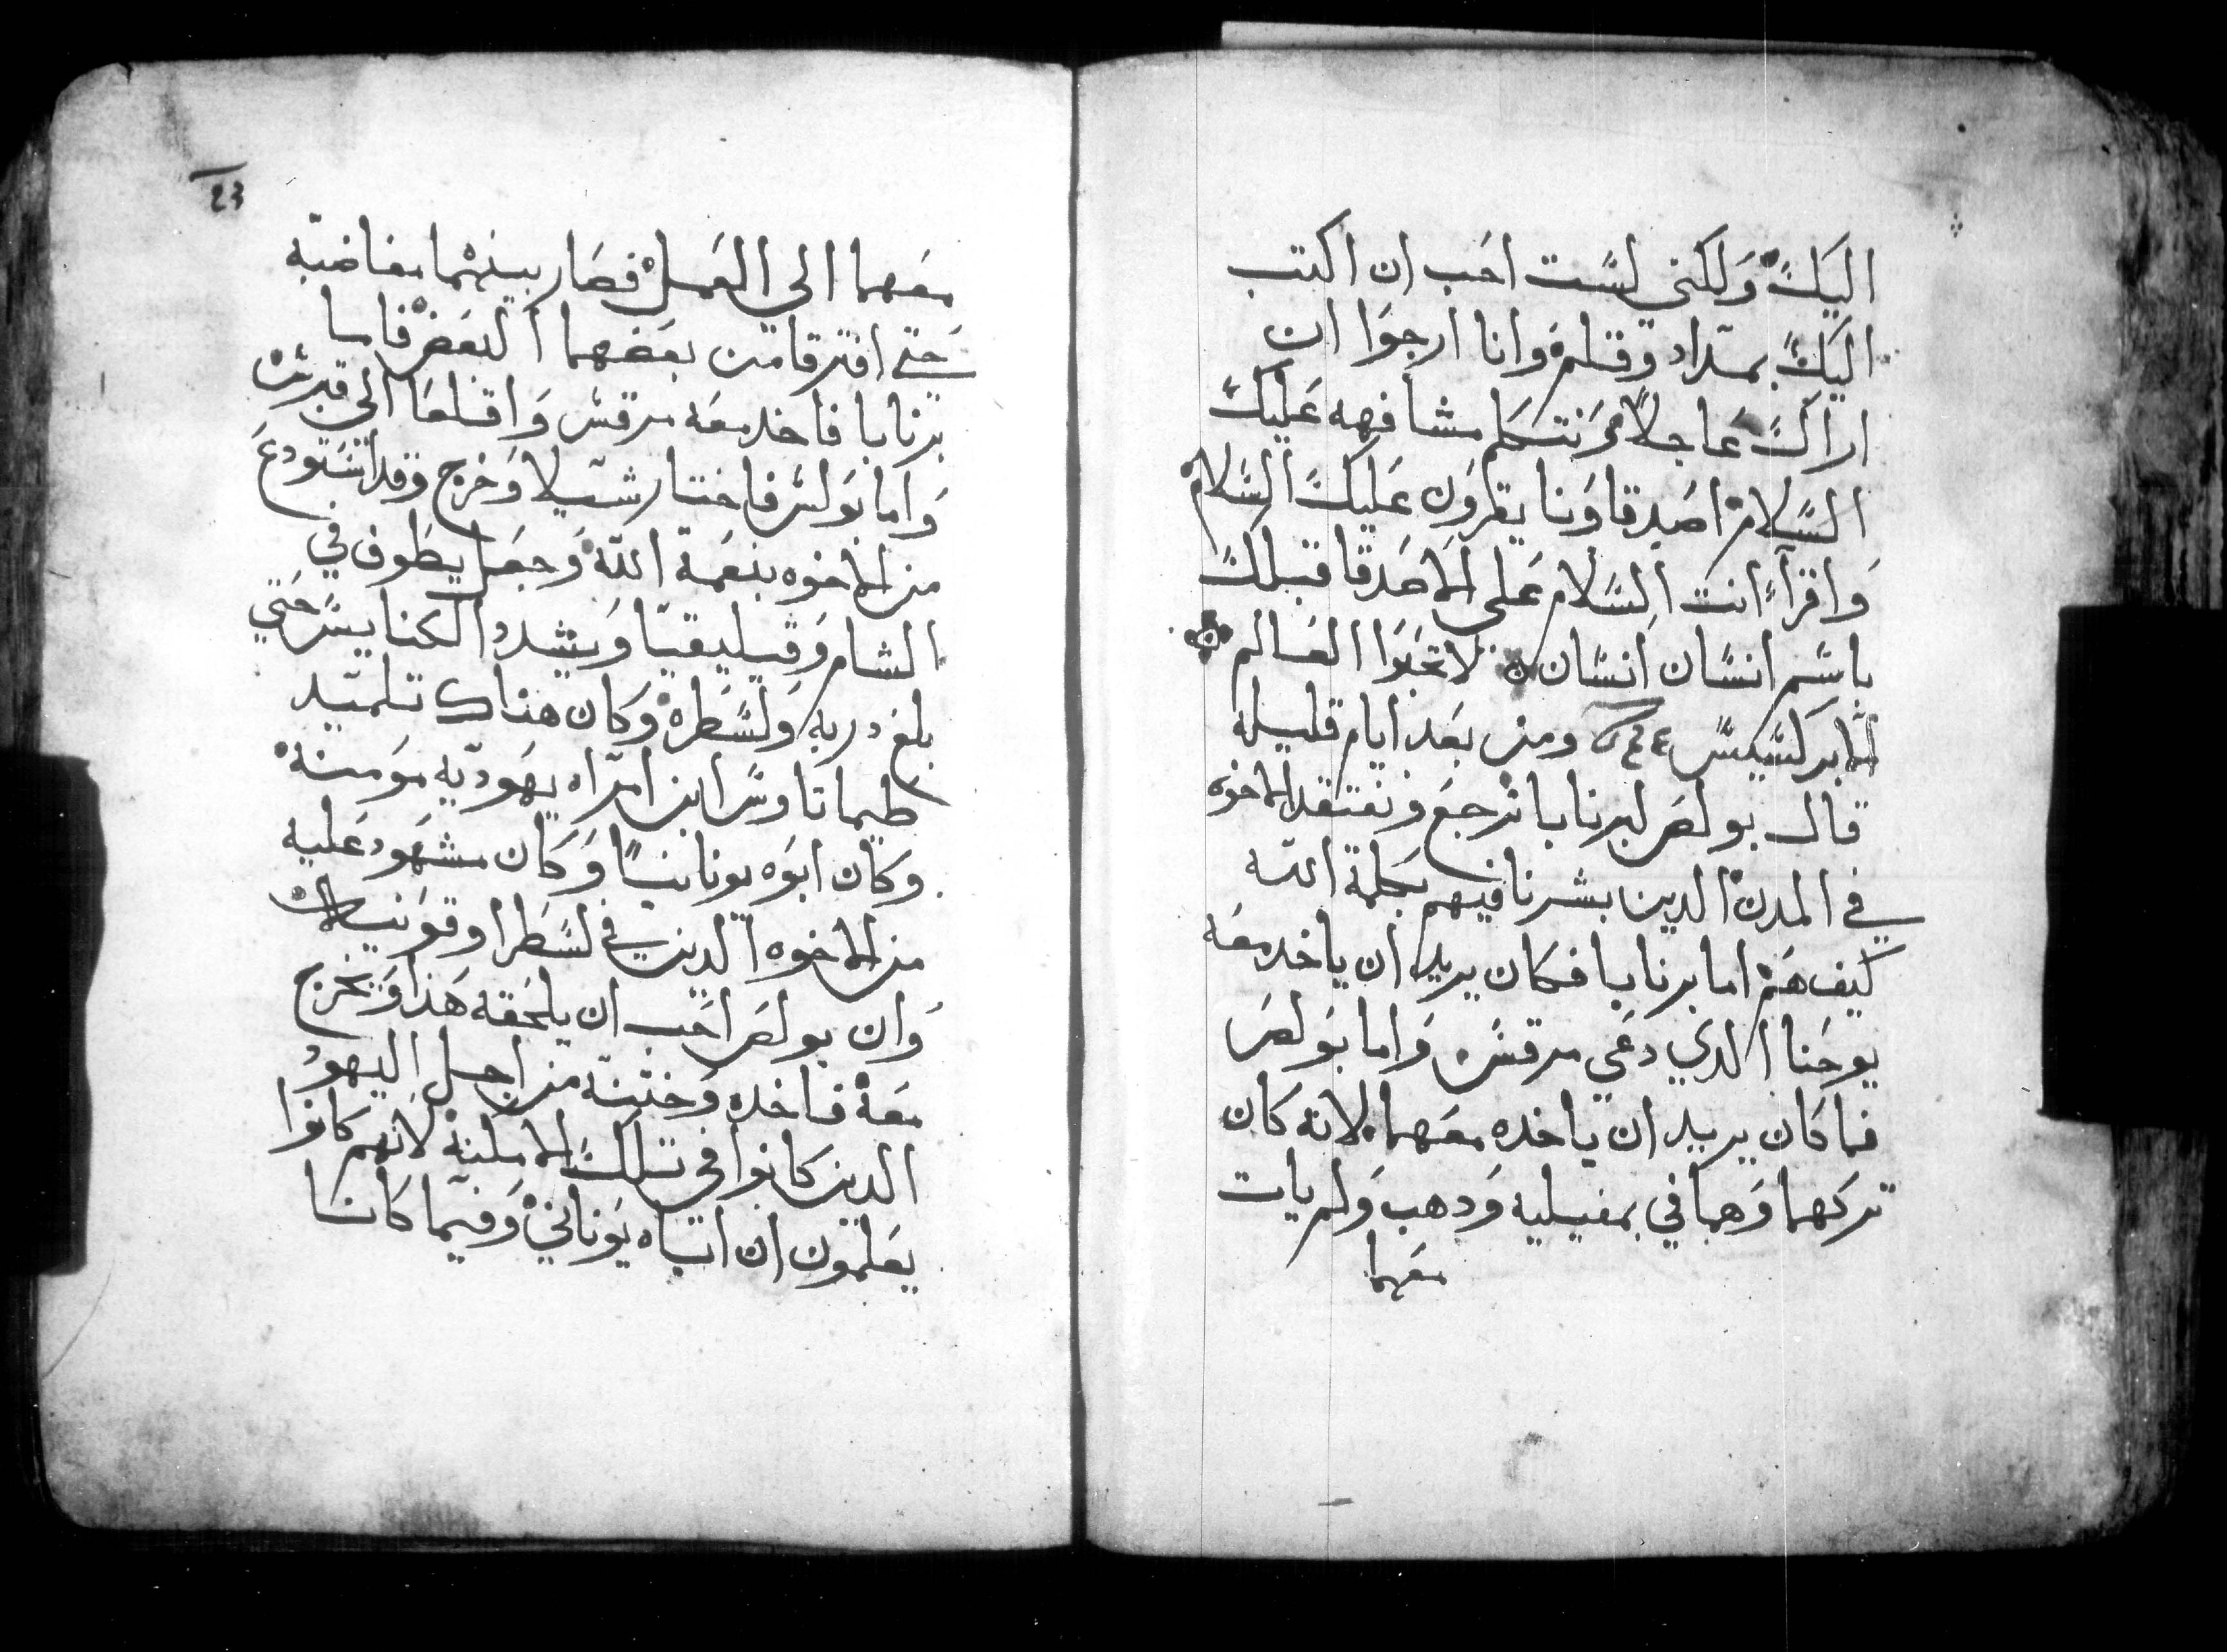 اليك ولكني لست احب ان اكتب
اليك بمداد وقلم وانا ارجوا ان
اراك عاجلا ونتكلم مشافهه عليك
السلام اصدقاونا يقرون عليك السلام
واقرا انت السلام على الاصدقا قبلك
باسم انسان انسان لا تحبوا العالم
الابركسيس ومن بعد ايام قليله
قال بولص لبرنابا نرجع ونفتقد الاخوه
في المدن الدين بشرنا فيهم بكلمة الله
كيف هم اما برنابا فكان يريد ان ياخد معه
يوحنا الدي دعي مرقس واما بولص
فما كان يريد ان ياخده معهما لانه كان
تركهما وهما في بمفيليه ودهب ولم يات
معهما
23
معهما الي العمل فصار بينهما مغاضبه
حتى افترقا من بعضهما البعض فاما
برنابا فاخد معه مرقس واقلعا الى قبرس
واما بولس فاختار شيلا وخرج وقد استودع
من الاخوه بنعمة الله وجعل يطوف في
الشام وقيليقيا ويشدد الكنايس حتي
بلغ دربه ولسطره وكان هناك تلميد
طيماتاوس ابن امراه يهوديه مومنة
وكان ابوه يونانيا وكان مشهود عليه
من الاخوه الدين في لسطرا وقونيه
وان بولص احب ان يلحقه هذا ويخرج
معه فاخده وختنة من اجل اليهود
الدين كانوا في تلك الامكنة لانهم كانوا
يعلمون ان اباه يوناني وفيما كانا